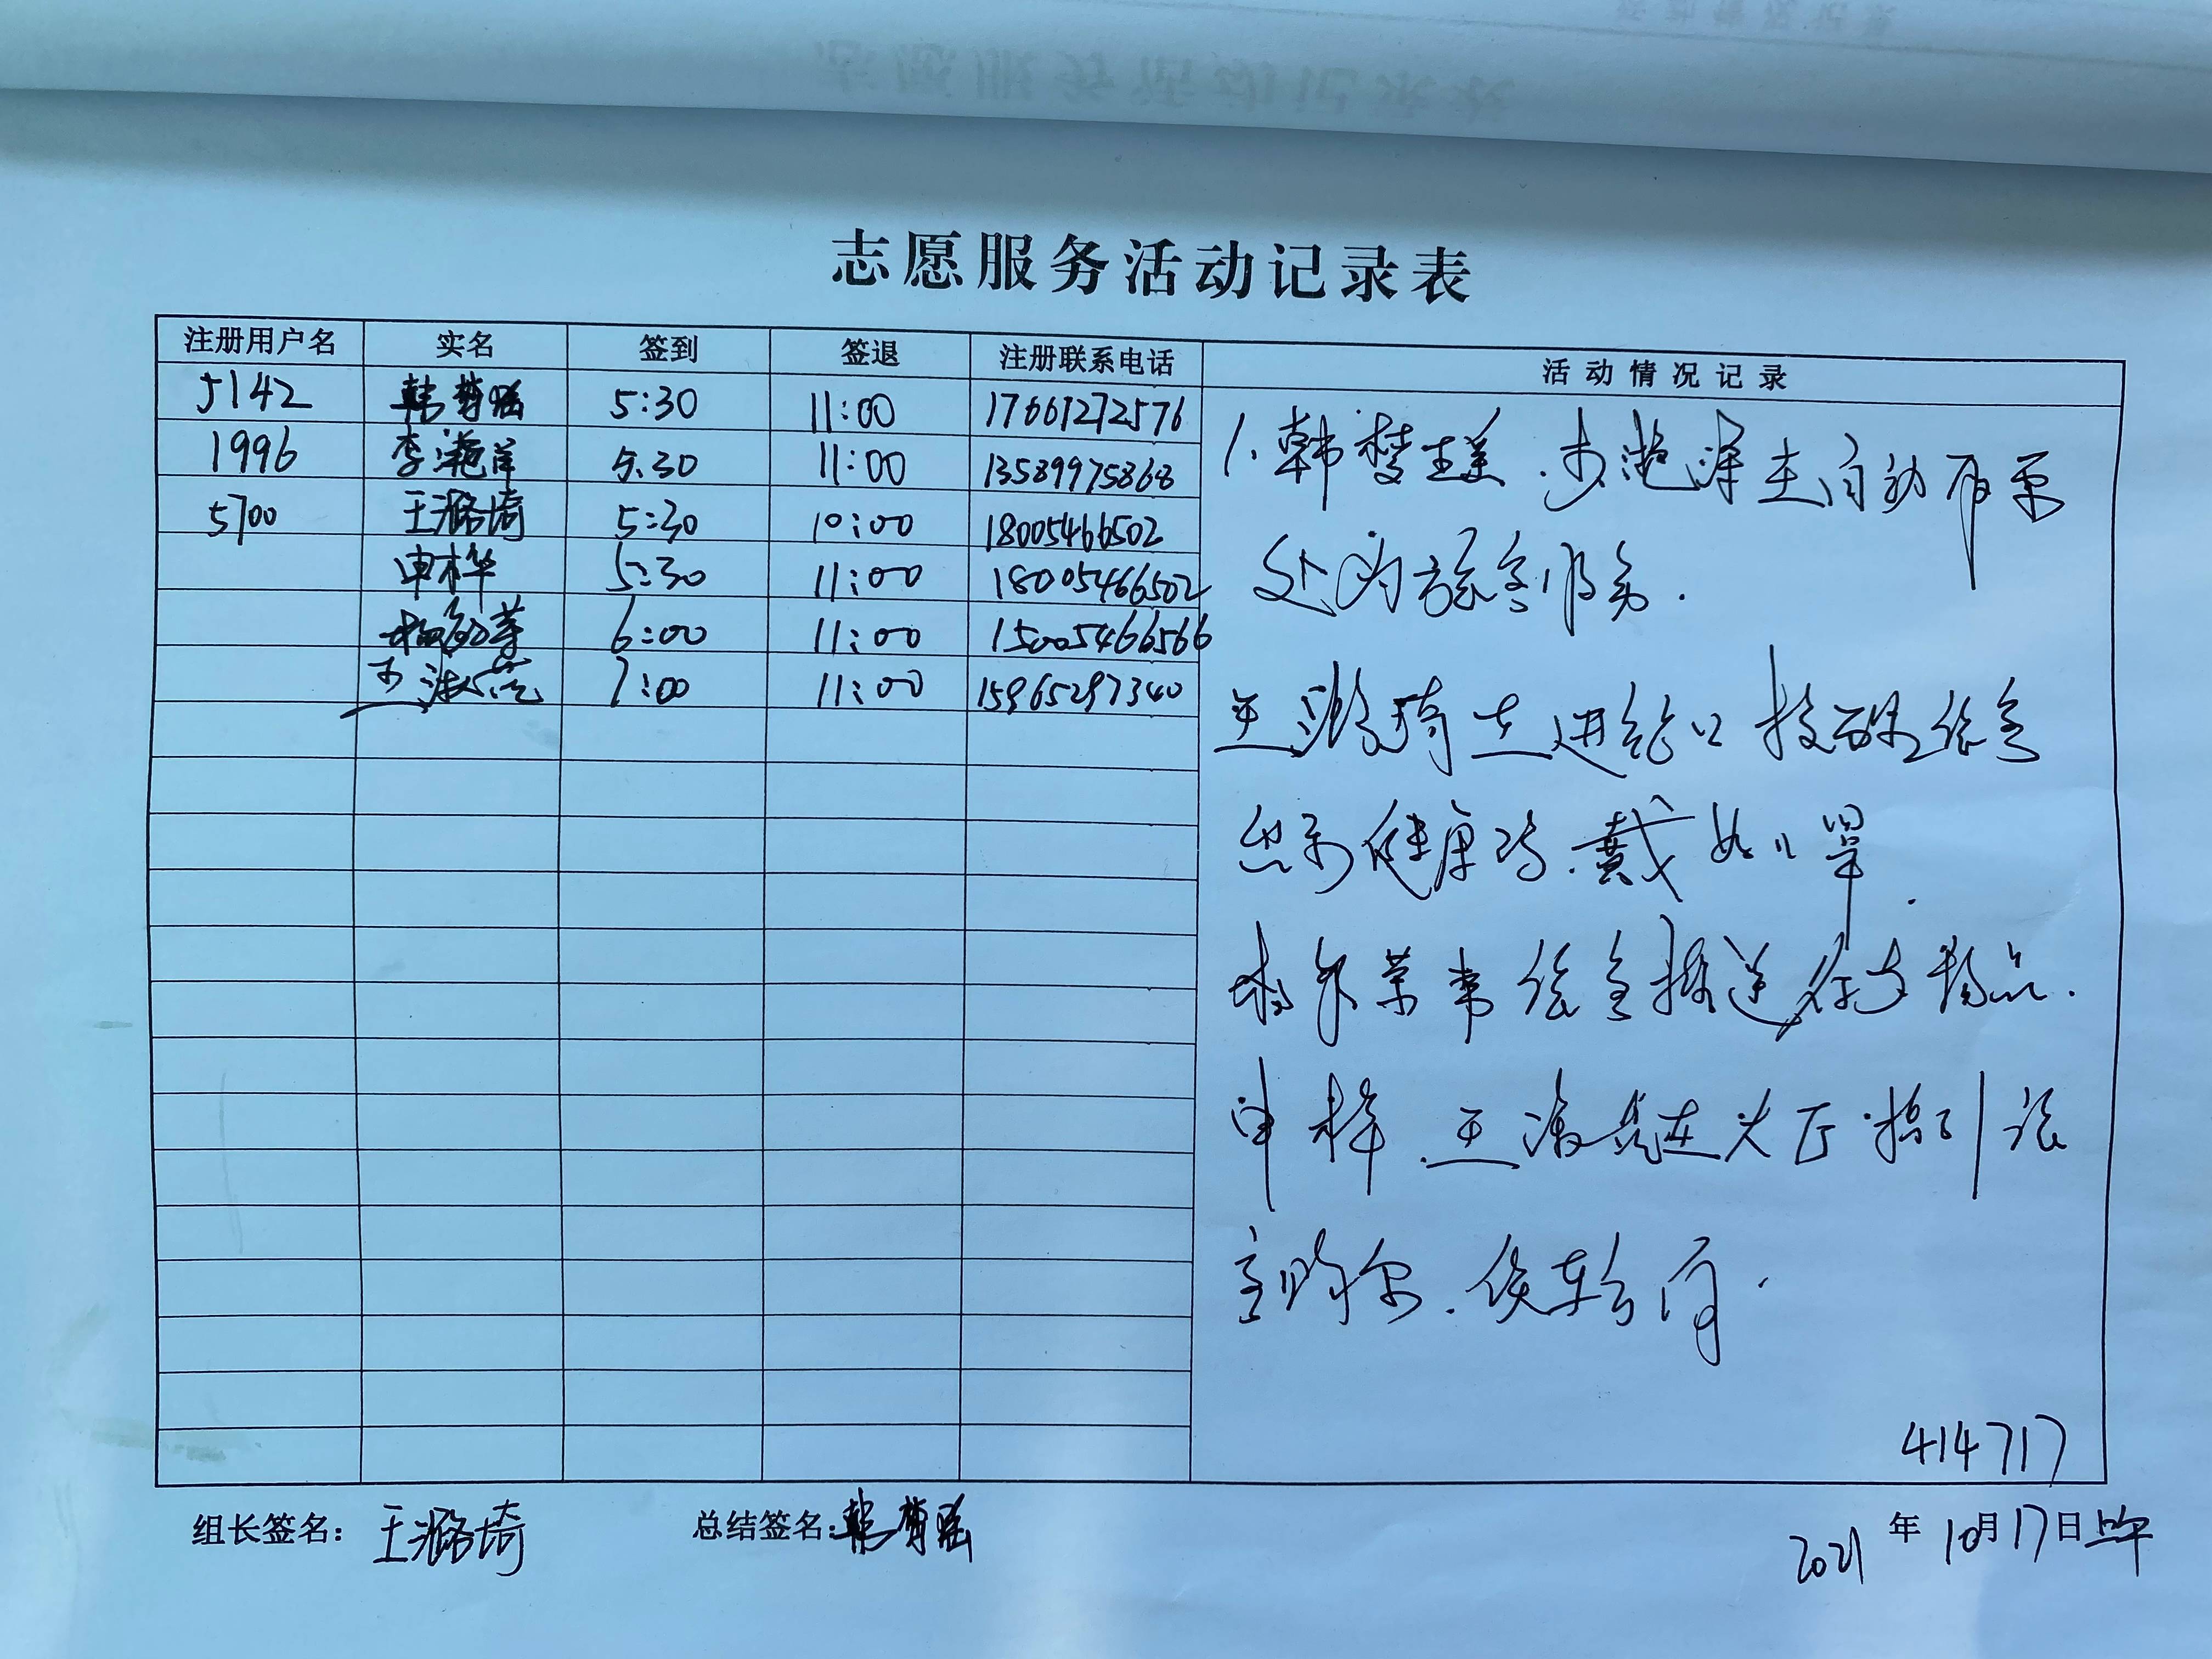 志愿服务活动记录表
注册用户名 实名 签到 签退 注册联系电话 活动情况记录
5142 韩梦瑶 5:30 11:00 17661272576
1996 李滟洋 5:30 11:00 13589975868
5700 王潞琦 5:30 10:00 18005466502
申桦 5:30 11:00 18005466502
6:00 11:00 15005466566
王淑 7:00 11:00 15965297340
1.韩梦瑶.李滟洋在自动售票
处为旅客服务.
王潞琦在进站口提醒旅客
出示健康码.戴好口罩.
荣帮旅客推送行李物品.
申桦.王淑 在大厅指引旅
客购票.候车等.
414717
组长签名: 王潞琦 总结签名: 韩梦瑶 2021年10月17日上午